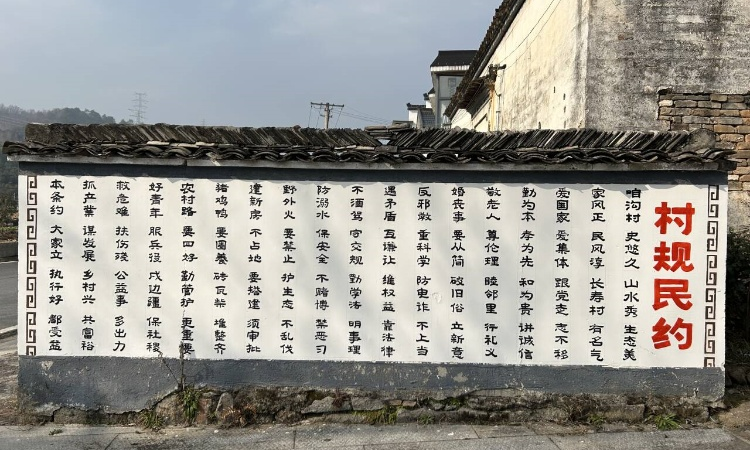 村规民约
咱沟村 史悠久 山水秀 生态美
家风正 民风淳 长寿村 有名气
爱国家 爱集体 跟党走 志不移
勤为本 孝为先 和为贵 讲诚信
敬老人 尊伦理 睦邻里 行礼义
婚丧事 要从简 破旧俗 立新意
反邪教 重科学 防电诈 不上当
遇矛盾 互谦让 维权益 靠法律
不酒驾 守交规 勤学法 明事理
防溺水 保安全 不赌博 禁恶习
野外火 要禁止 护生态 不乱伐
建新房 不占地 要修建 须审批
猪鸡鸭 要圈养 砖瓦柴 堆整齐
农村路 要四好 勤管护 更重要
好青年 服兵役 戍边疆 保社稷
救危难 扶伤残 公益事 多出力
抓产业 谋发展 乡村兴 共富裕
本条约 大家立 执行好 都受益